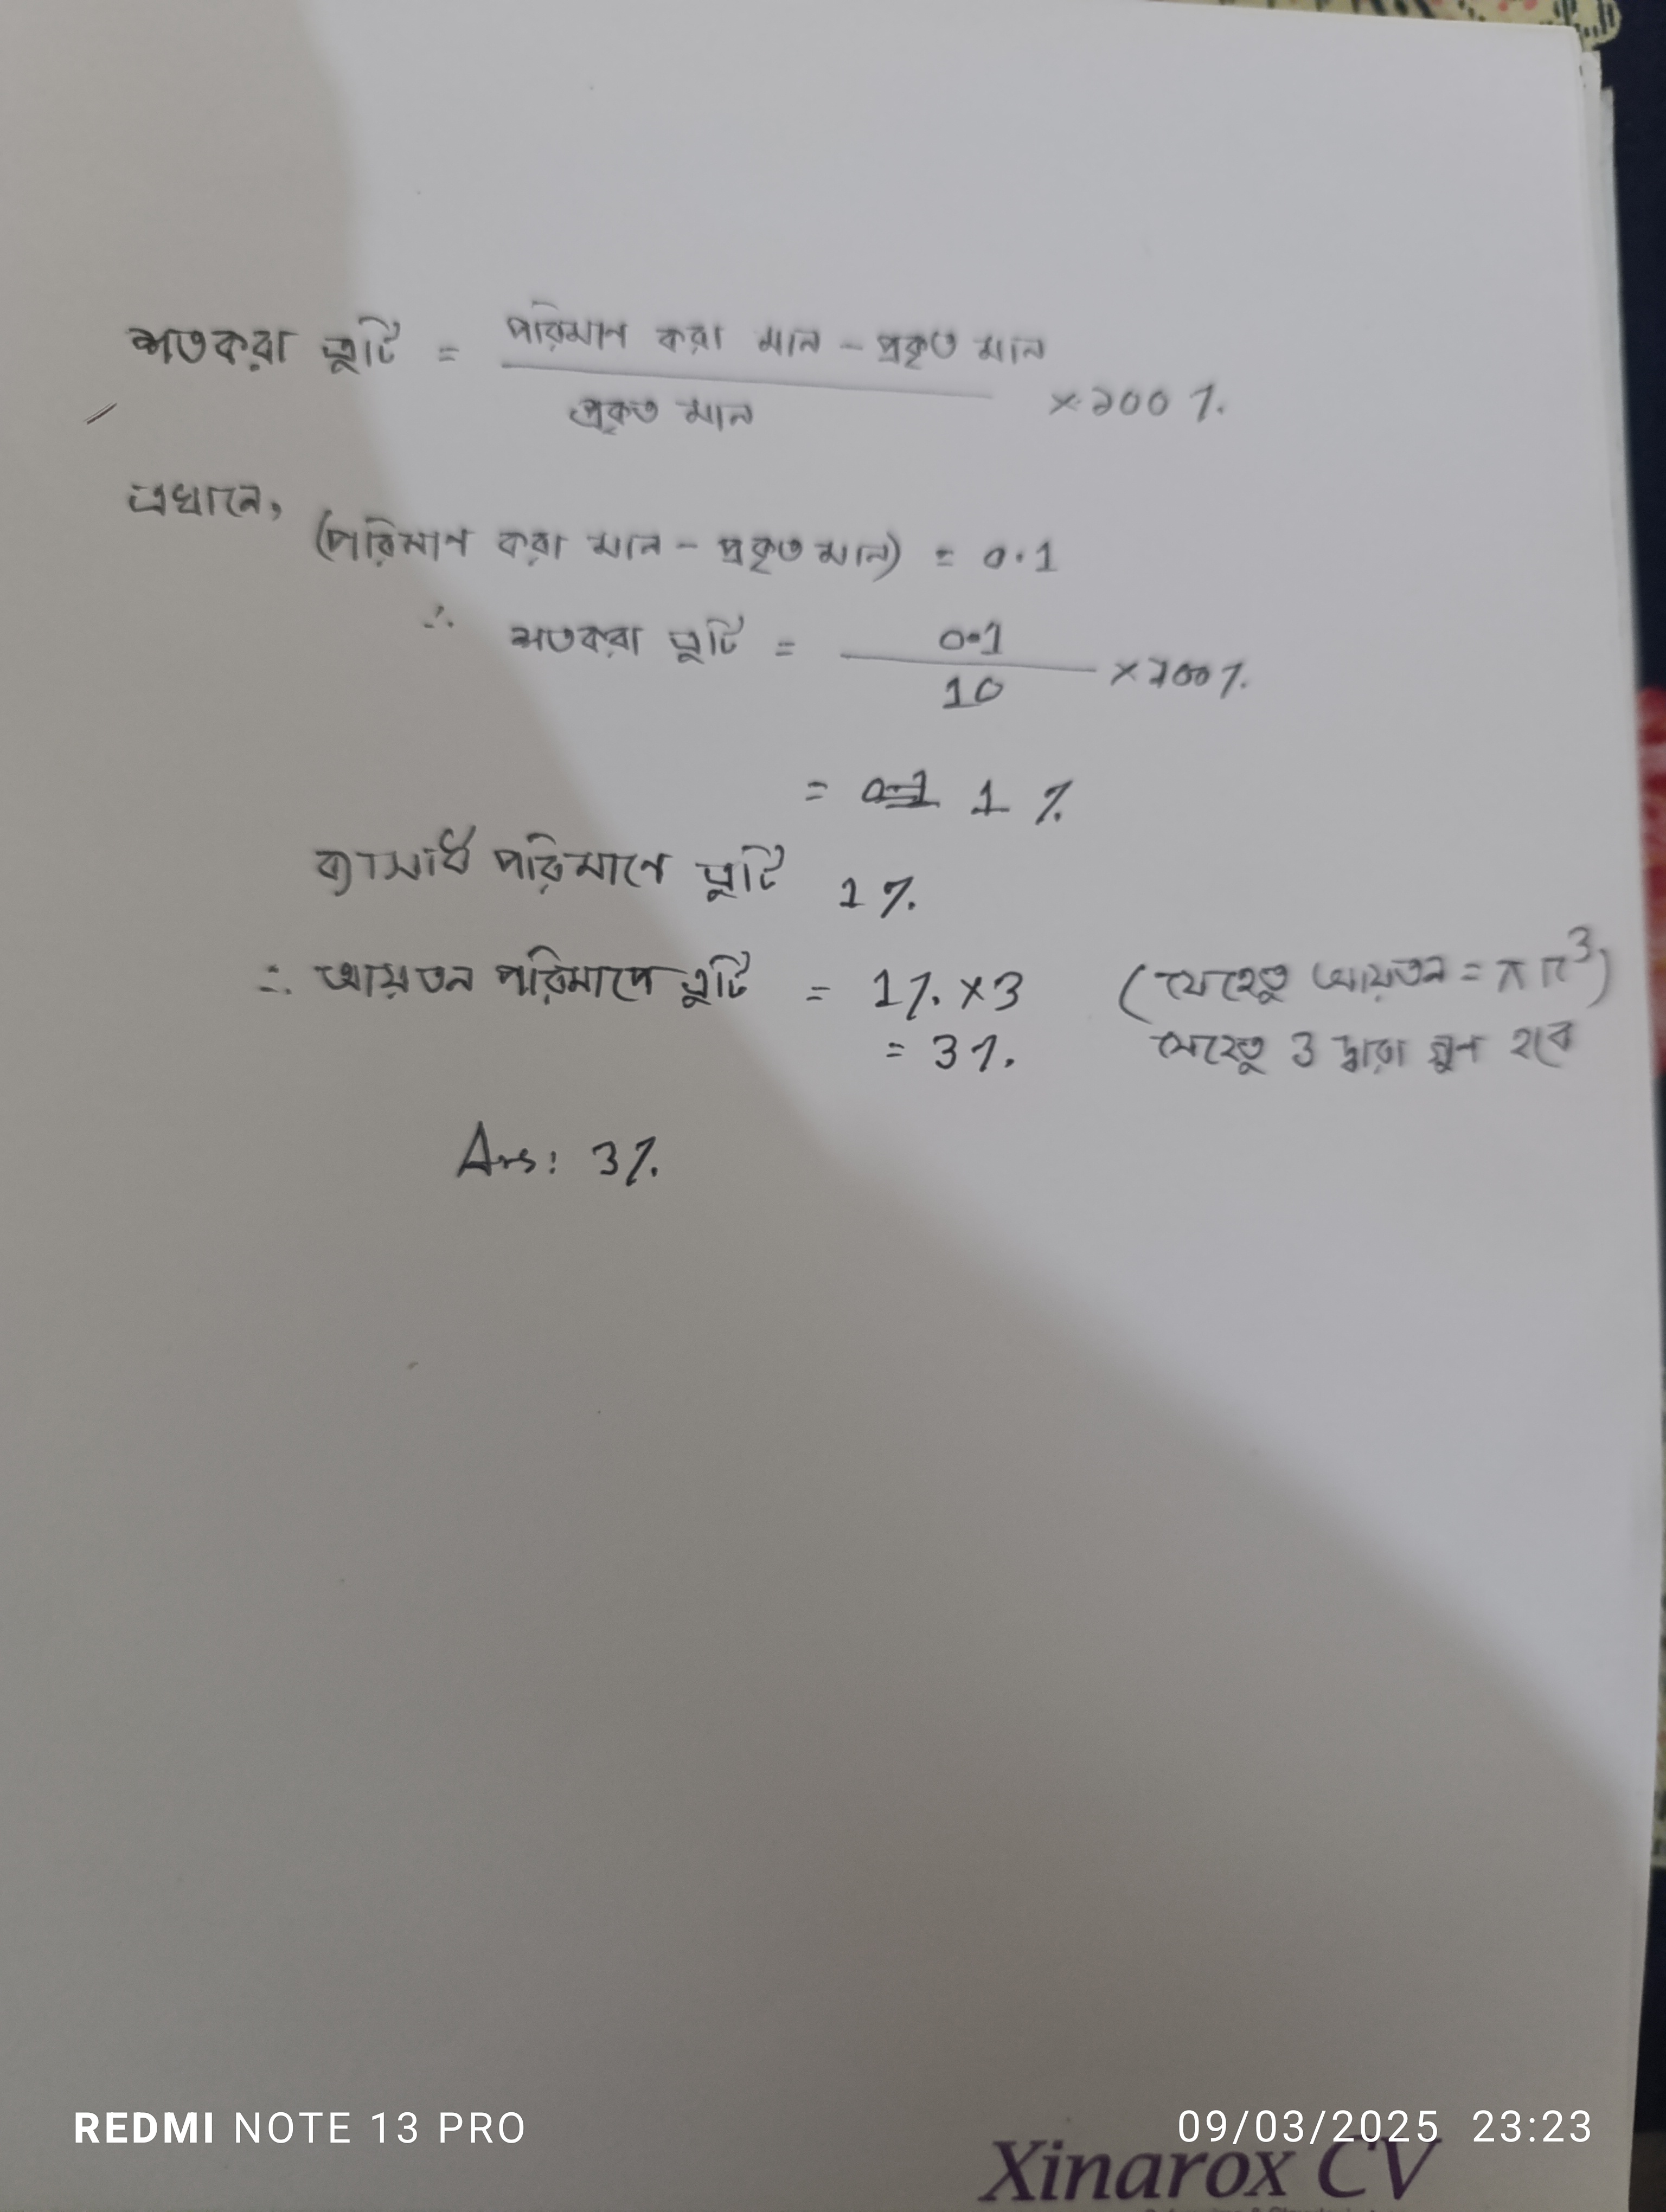 শতকরা ত্রুটি = পরিমাপ করা মান - প্রকৃত মান / প্রকৃত মান × ১00 %
এখানে,
(পরিমাপ করা মান - প্রকৃত মান) = 0.1
∴ শতকরা ত্রুটি = 0.1 / 10 × 100 %
= 1 %
ব্যাসার্ধ পরিমাপে ত্রুটি 1 %
∴ আয়তন পরিমাপে ত্রুটি = 1% × 3 (যেহেতু আয়তন = πr³)
= 3 % সেহেতু 3 দ্বারা গুণ হবে
Ans: 3%
REDMI NOTE 13 PRO
09/03/2025 23:23
Xinarox CV